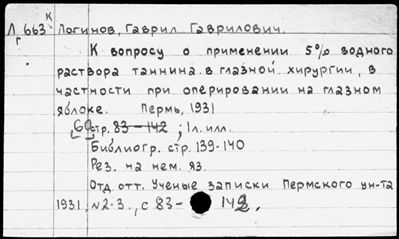 Л663к Логинов, Гаврил Гаврилович.
г
К вопросу о применении 5% водного
раствора таннина в глазной хирургии, в
частности при оперировании на глазном
яблоке. Пермь, 1931
[60] стр. 83-142; 1л. илл.
Библиогр. стр. 139-140
Рез. на нем. яз.
Отд. отт. Ученые записки Пермского ун-та
1931, №2-3, с 83- 142.